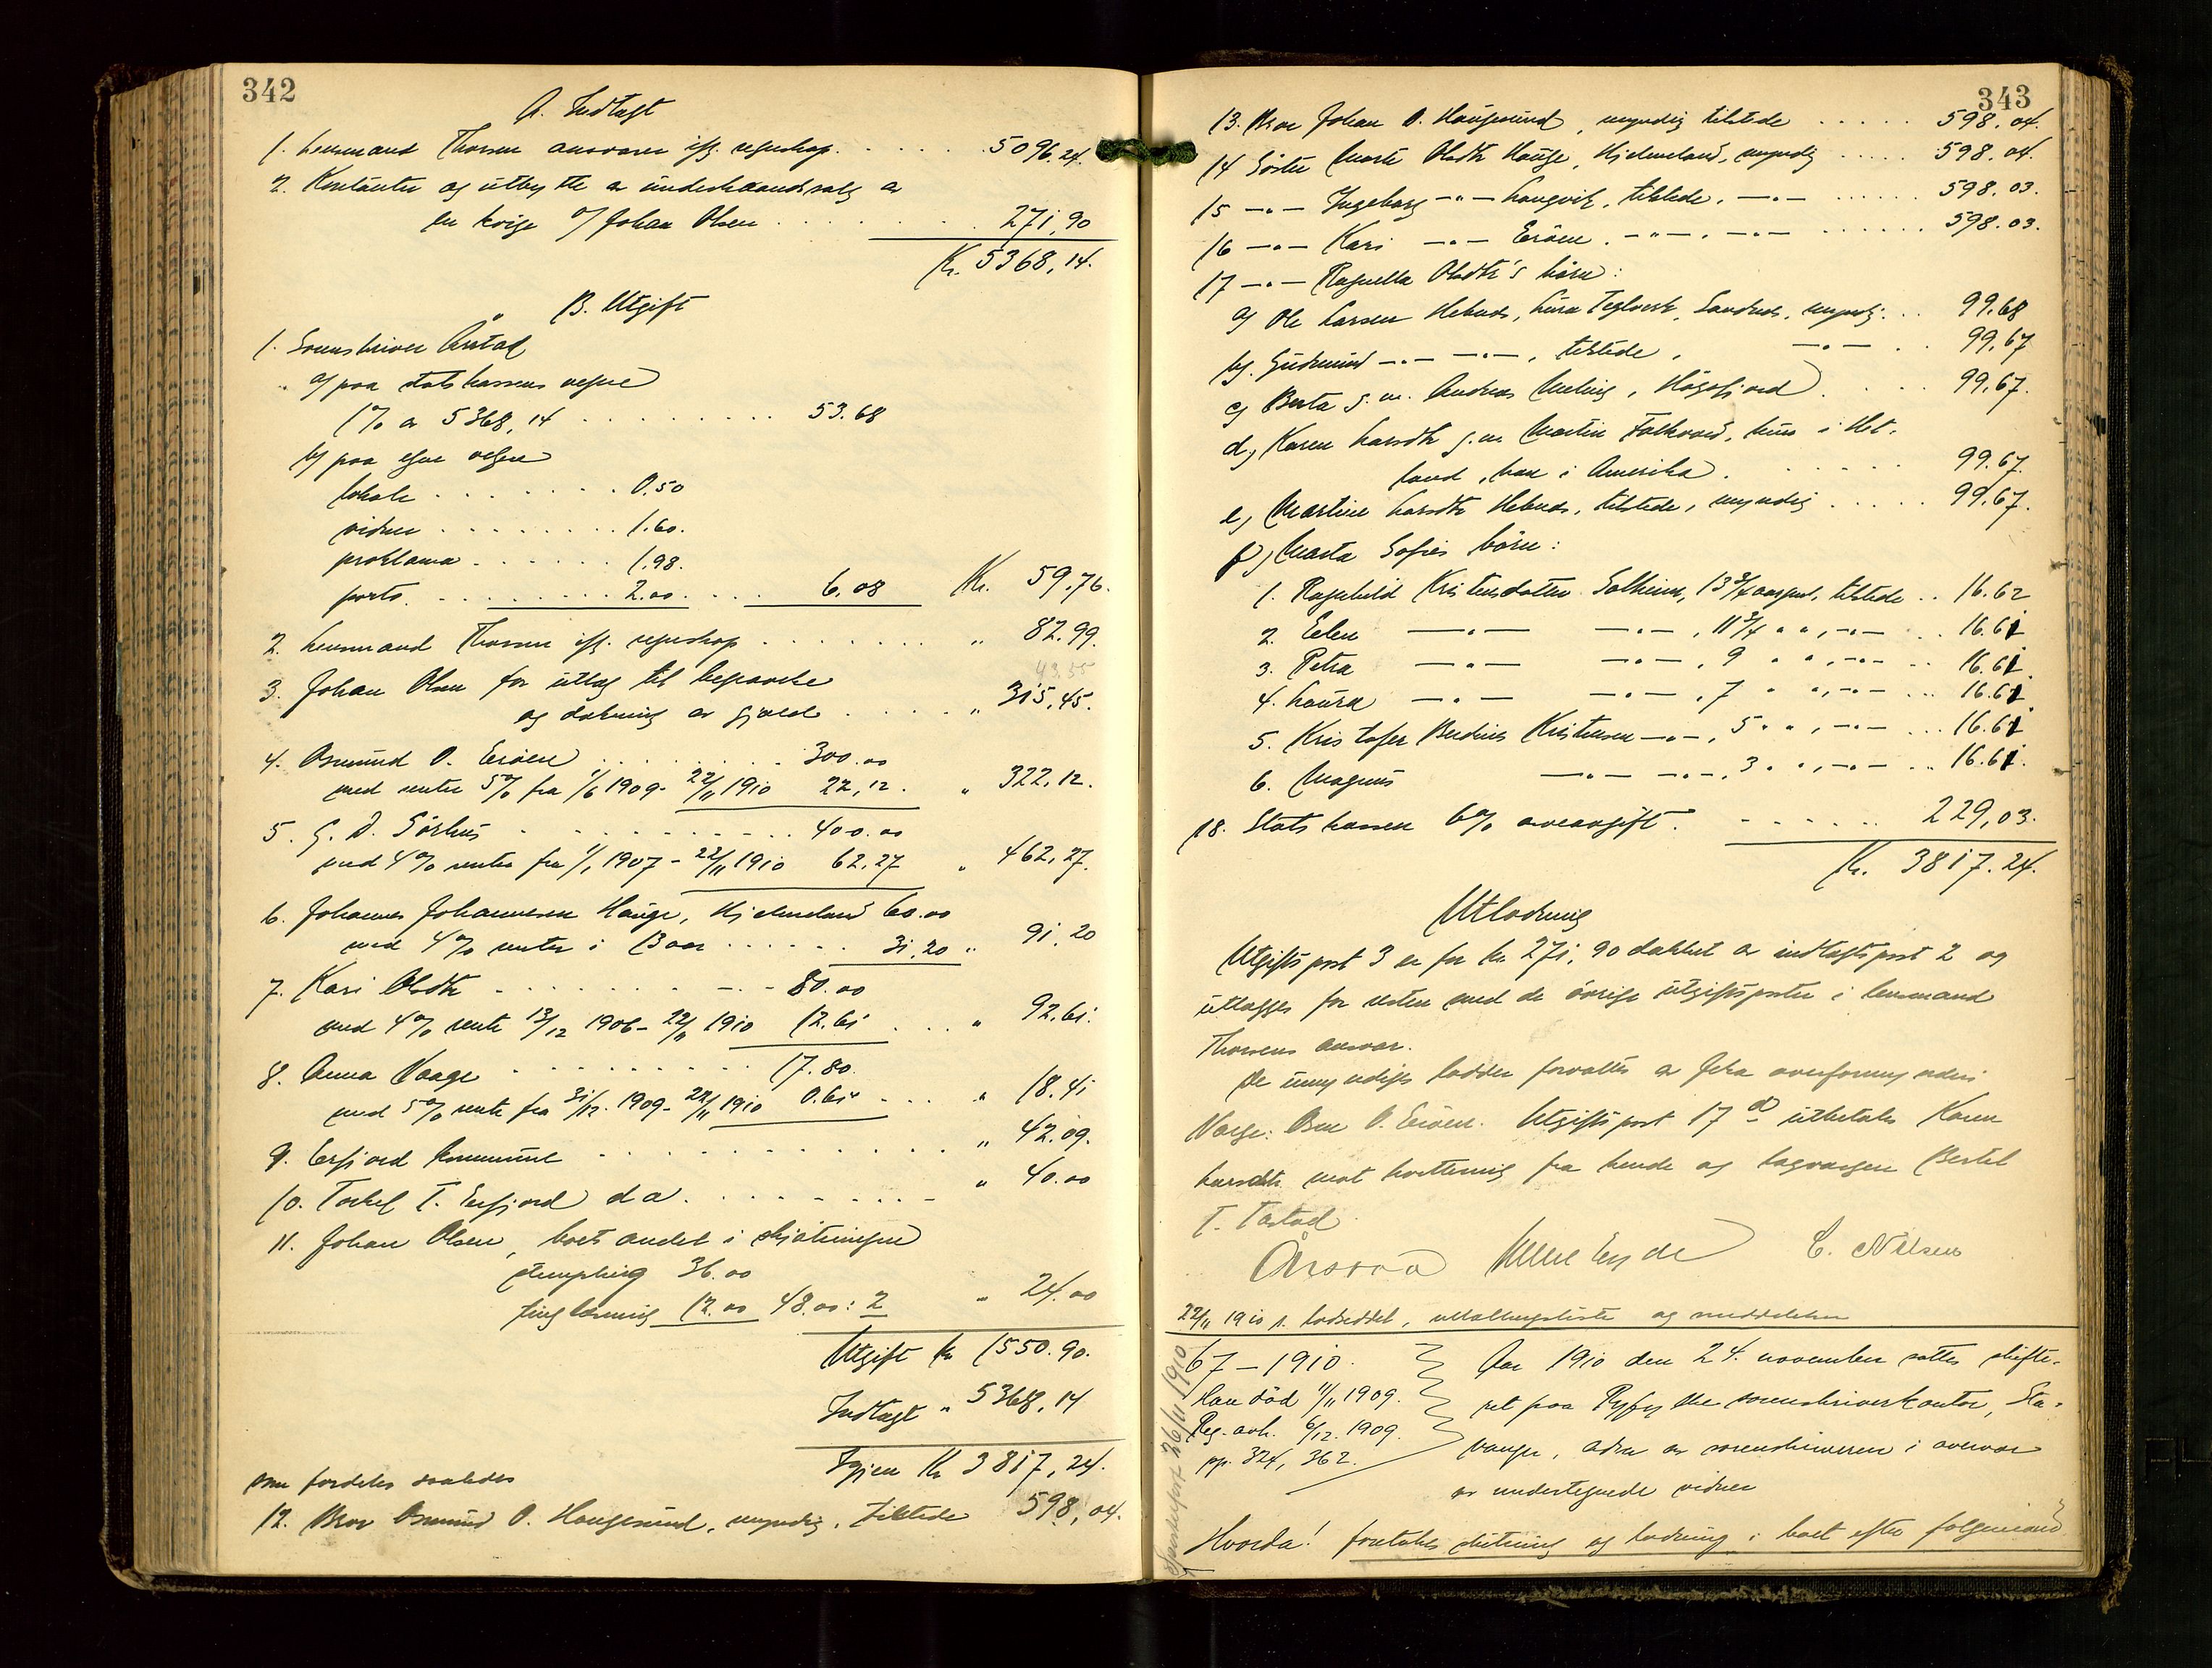 342
A. Indtægt
1. Lensmand Thorsen ansvarer iflg. regnskap. . . . . . . 5096,24.
2. Kontanter og utbytte av underhaandssalg av
en kvige v/ Johan Olsen . . . . . . . 271,90
Kr. 5368,14.
B. Utgift
1. Sorenskriver Årstad
a) paa statskassens vegne
1% av 5368,14 . . . . . . . . . 53.68
b) paa egne vegne
lokale . . . . . . . 0.50
vidner . . . . . . . . 1.60.
proklama . . . . . . 1.98.
porto . . . . . . . . . 2.00. . . . 6.08 Kr. 59.76.
2. Lensmand Thorsen iflg. regnskap . . . . . . . " 82.99.
43.55
3. Johan Olsen for utlæg til begravelse
og dækning av gjæld . . . . . " 315,45.
4. Osmund O. Erøen . . . . . . . 300.00
med renter 5% fra 1/6 1909 - 22/11 1910 22,12. " 322,12.
5. G. D. Sørhus . . . . . . . . . 400.00
med 4% renter fra 1/1 1907 - 22/11 1910 62,27 " 462,27.
6. Johannes Johannesen Hauge, Hjelmeland 60.00
med 4% renter i 13 aar . . . . . . 31,20 " 91,20
7. Kari Olsdtr . . . . . . . . 80.00
med 4% rente 13/12 1906 - 22/11 1910 12.61 . . . " 92.61.
8. Anna Vaage . . . . . . . . . . 17.80.
med 5% rente fra 31/12. 1909 - 22/11 1910 0.61 . . . " 18.41
9. Erfjord kommune . . . . . . . . . . . " 42.09.
10. Torkel T. Erfjord do . . . . . . . . . " 40.00
11. Johan Olsen, boets andel i skjøtningen
stempling 36.00
tinglæsning 12.00 48.00 : 2 " 24.00
Utgift kr 1550.90.
Indtægt " 5368,14
Igjen Kr 3817,24.
som fordeles saaledes
12. Bror Osmund O. Haugesund, myndig, tilstede 598,04.
343
13. Bror Johan O. Haugesund, myndig tilstede . . . . . 598,04.
14 Søster Marte Olsdtr Hauge, Hjelmeland, myndig . . . . . 598.04.
15 —"— Ingeborg —"— Langvik, tilstede, —"— . . . . . . 598.03.
16 —"— Kari —"— Erøen. —"—. —"— . . . . . . . 598.03.
17 —"— Ragnella Olsdtr's børn:
a) Ole Larsen Hebnes, Lura Teglverk, Sandnes, myndig . . . 99.68
b). Gudmund —"— —"—, tilstede, —"— . . 99.67
c) Berta g. m. Andreas Meling, Høgsfjord . . . . 99.67.
d) Karen Larsdtr g. m. Martin Folkvord, hun i Het-
land, han i Amerika . . . . . . . 99.67.
e) Martine Larsdtr Hebnes, tilstede, myndig . . . . . 99.67.
f) Marta Sofies børn:
1. Ragnhild Kristensdatter Solheim, 13 3/4 aar gml, tilstede . . 16.62
2. Elen —"— —"—, 11 3/4 " ", —"— . . . 16.61
3. Petra —"— —"—, 9 " ", —"— . . 16.61
4. Laura —"— —"—, 7 " ", —"— . . . 16.61
5. Kristofer Berdines Kristensen —"—, 5 " ", —"— . . . 16.61
6. Magnus —"— —"—, 3 " ", —"— . . . 16.61.
18. Statskassen 6% arveavgift. . . . . . . 229,03.
Kr. 3817.24.
Utlodning
Utgiftspost 3 er for kr. 271,90 dækket av indtægtspost 2 og
utlægges for resten med de øvrige utgiftsposter i lensmand
Thorsens ansvar.
De umyndiges lodder forvaltes av Jelsa overformynderi
Verge: Osm O. Erøen. Utgiftspost 17 d) utbetales Karen
Larsdtr mot kvittering fra hende og lagvergen Bertel
T. Tastad.
Årstad C. Nilsen
22/11 1910 s. lodseddel, utbetalingsliste og meddelelse
67 — 1910.
Han død 1/11 1909.
Reg. avh. 6/12. 1909.
pp. 324, 362.
Aar 1910 den 24. november sattes skifte-
ret paa Ryfylke sorenskriverkontor, Sta-
vanger, adm. av sorenskriveren i overvær
av undertegnede vidner
Hvorda! foretokes slutning og lodning i boet efter følgemand
26/11 1910